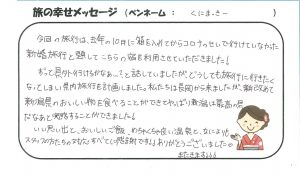 旅の幸せメッセージ（ペンネーム： くにまっきー ）
今回の旅行は、去年の10月に籍を入れてからコロナのせいで行けていなかった
新婚旅行と題してこちらの宿を利用させていただきました！
で県外行けるかなぁ…？と話していましたがどうしても旅行に行きたく
なってしまい県内旅行を計画しました。私たちは長岡から来ましたが、新ためて
新潟県のおいしい物を食べることができてやっぱり新潟は最高の県
だなぁと実感することができました！
いい思い出と、おいしいご飯、めちゃくちゃ良い温泉と、なにより
スタッフの方たちのすべてに感謝です！ありがとうございました
またきます